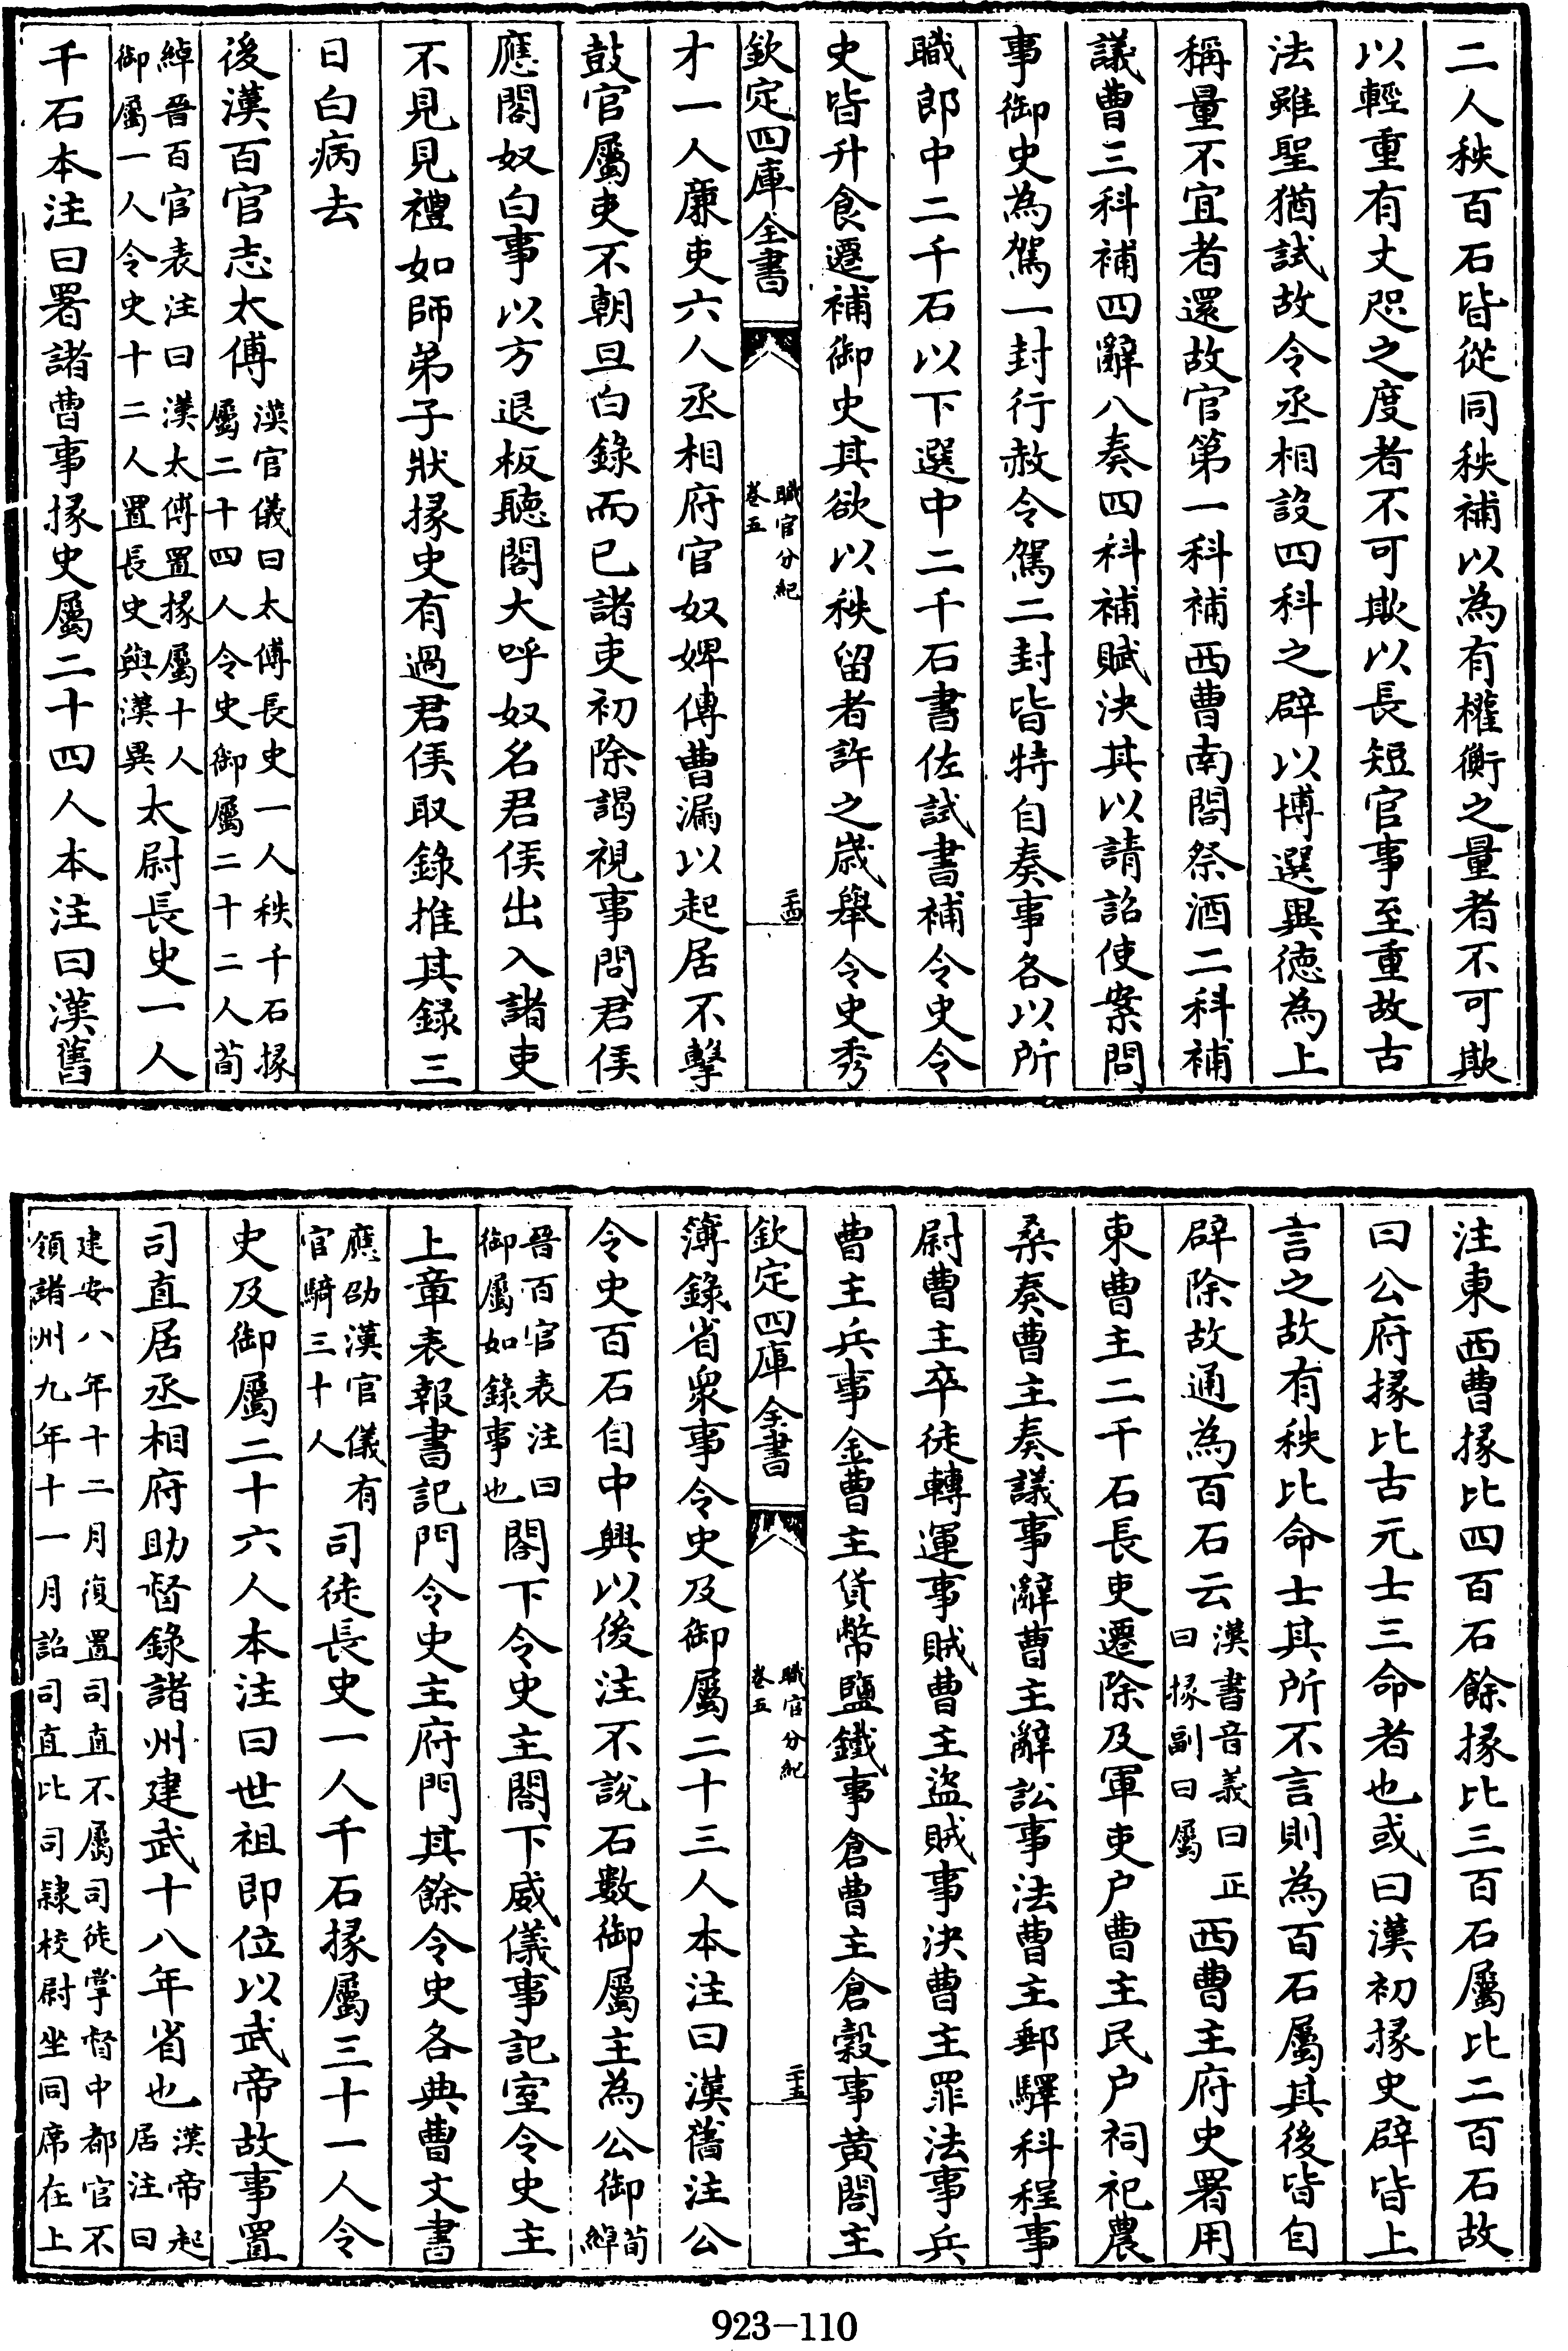 二人秩百石皆從同秩補以為有權衡之量者不可欺
以輕重有丈咫之度者不可欺以長短官事至重故古
法雖聖猶試故令丞相設四科之辟以博選異徳為上
稱量不宜者還故官第一科補西曹南閤祭酒二科補
議曹三科補四辭八奏四科補賦決其以請詔使案問
事御史為駕一封行赦令駕二封皆特自奏事各以所
職郎中二千石以下選中二千石書佐試書補令史令
史皆升食遷補御史其欲以秩留者許之歲舉令史秀
欽定四庫全書
職官分紀
卷五
二十四
才一人廉吏六人丞相府官奴婢傳曹漏以起居不擊
鼓官屬吏不朝旦白錄而已諸吏初除謁視事問君侯
應閤奴白事以方退板聽閤大呼奴名君侯出入諸吏
不見見禮如師弟子狀掾史有過君侯取錄推其錄三
日白病去
後漢百官志太傅
漢官儀曰太傅長史一人秩千石掾
屬二十四人令史御屬二十二人荀
綽晉百官表注曰漢太傅置掾屬十人
御屬一人令史十二人置長史與漢異
太尉長史一人
千石本注曰署諸曹事掾史屬二十四人本注曰漢舊
注東西曹掾比四百石餘掾比三百石屬比二百石故
曰公府掾比古元士三命者也或曰漢初掾史辟皆上
言之故有秩比命士其所不言則為百石屬其後皆自
辟除故通為百石云
漢書音義曰正
曰掾副曰屬
西曹主府史署用
東曹主二千石長吏遷除及軍吏户曹主民户祠祀農
桑奏曹主奏議事辭曹主辭訟事法曹主郵驛科程事
尉曹主卒徒轉運事賊曹主盜賊事決曹主罪法事兵
曹主兵事金曹主貨幣鹽鐵事倉曹主倉穀事黃閤主
欽定四庫全書
職官分紀
卷五
二十五
簿錄省衆事令史及御屬二十三人本注曰漢舊注公
令史百石自中興以後注不說石數御屬主為公御
荀
綽
晉百官表注曰
御屬如錄事也
閤下令史主閤下威儀事記室令史主
上章表報書記門令史主府門其餘令史各典曹文書
應劭漢官儀有
官騎三十人
司徒長史一人千石掾屬三十一人令
史及御屬二十六人本注曰世祖即位以武帝故事置
司直居丞相府助督錄諸州建武十八年省也
漢帝起
居注曰
建安八年十二月復置司直不屬司徒掌督中都官不
領諸州九年十一月詔司直比司隷校尉坐同席在上
923-110